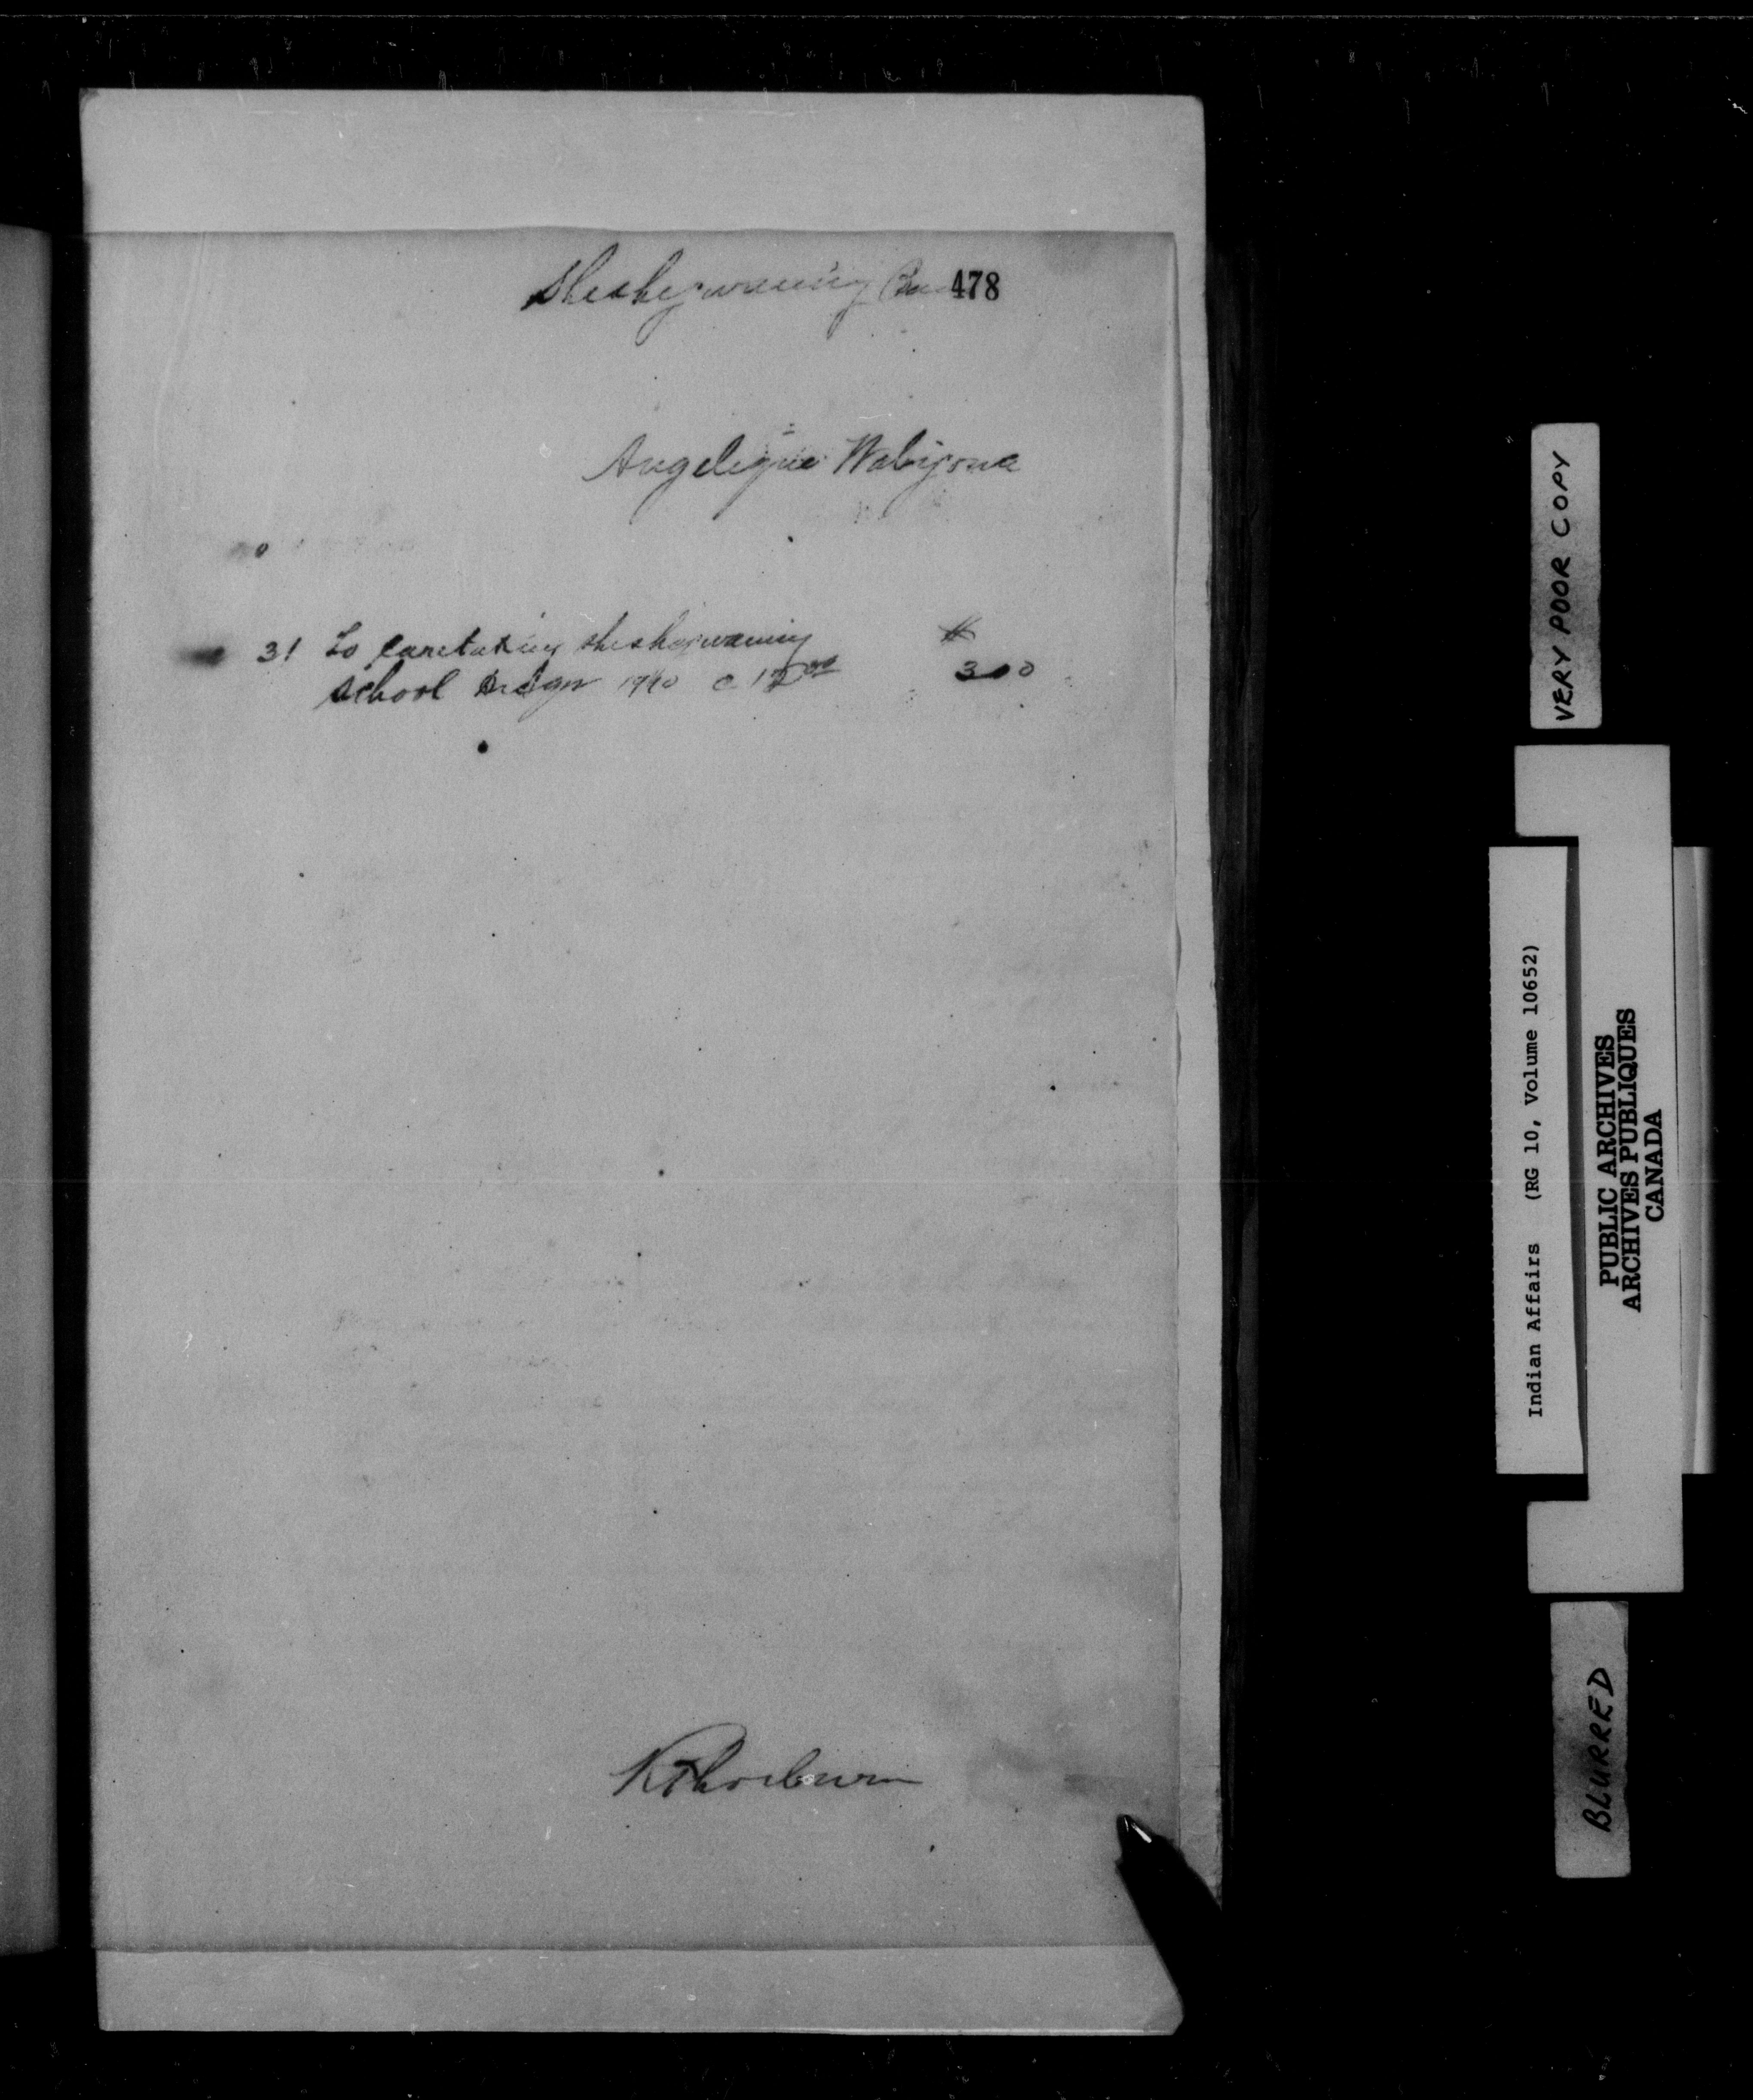 Sheshegwaning 478
Angelique Wabigona
31 To caretaking Sheshegwaning $
School 12 00 300
VERY POOR COPY
Indian Affairs (RG 10, Volume 10652)
PUBLIC ARCHIVES
ARCHIVES PUBLIQUES
CANADA
BLURRED